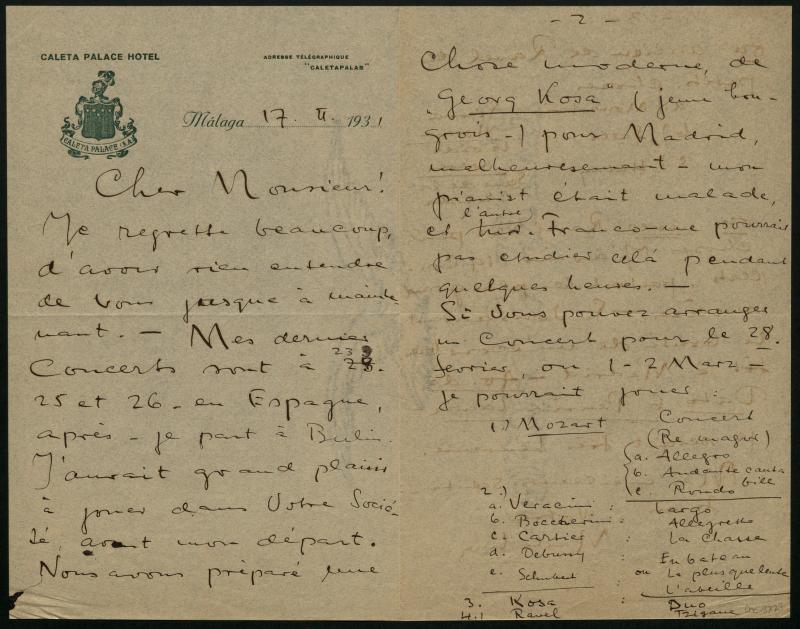 CALETA PALACE HOTEL
ADRESSE TÉLÉGRAPHIQUE
"CALETAPALAS"
CALETA PALACE (S.A.)
Málaga 17. II. 1931
Cher Monsieur!
Je regrette beaucoup,
d'avoir rien entendre
de Vous jusque à mainte
nant. — Mes dernier
Concerts sont à 23
25 et 26 - en Espagne,
après - je part à Berlin.
J'aurait grand plaisir
à jouer dans Votre Socié-
té, avant mon départ.
Nous avons préparé une
- 2 -
Chose moderne, de
"Georg Kosa" (jeune hon-
grois -) pour Madrid,
malheuresement - mon
pianist était malade,
l'autre
et Franco - ne pourrait
pas etudier celá pendant
quelques heures. —
Si Vous pouvez arranger
un Concert pour le 28.
fevrier, ou 1 - 2 Marz —
je pourrait jouer:
1.) Mozart Concert
(Re majeur)
a. Allegro
b. Andante canta
bile
c. Rondo
2.)
a. Veracini : Largo
b. Boccherini : Allegretto
c. Cartier : La Chasse
d. Debussy : En bateau
ou La plus que lente
e. Schubert L'abeille
3. Kosa : Duo
4.) Ravel Tzigane